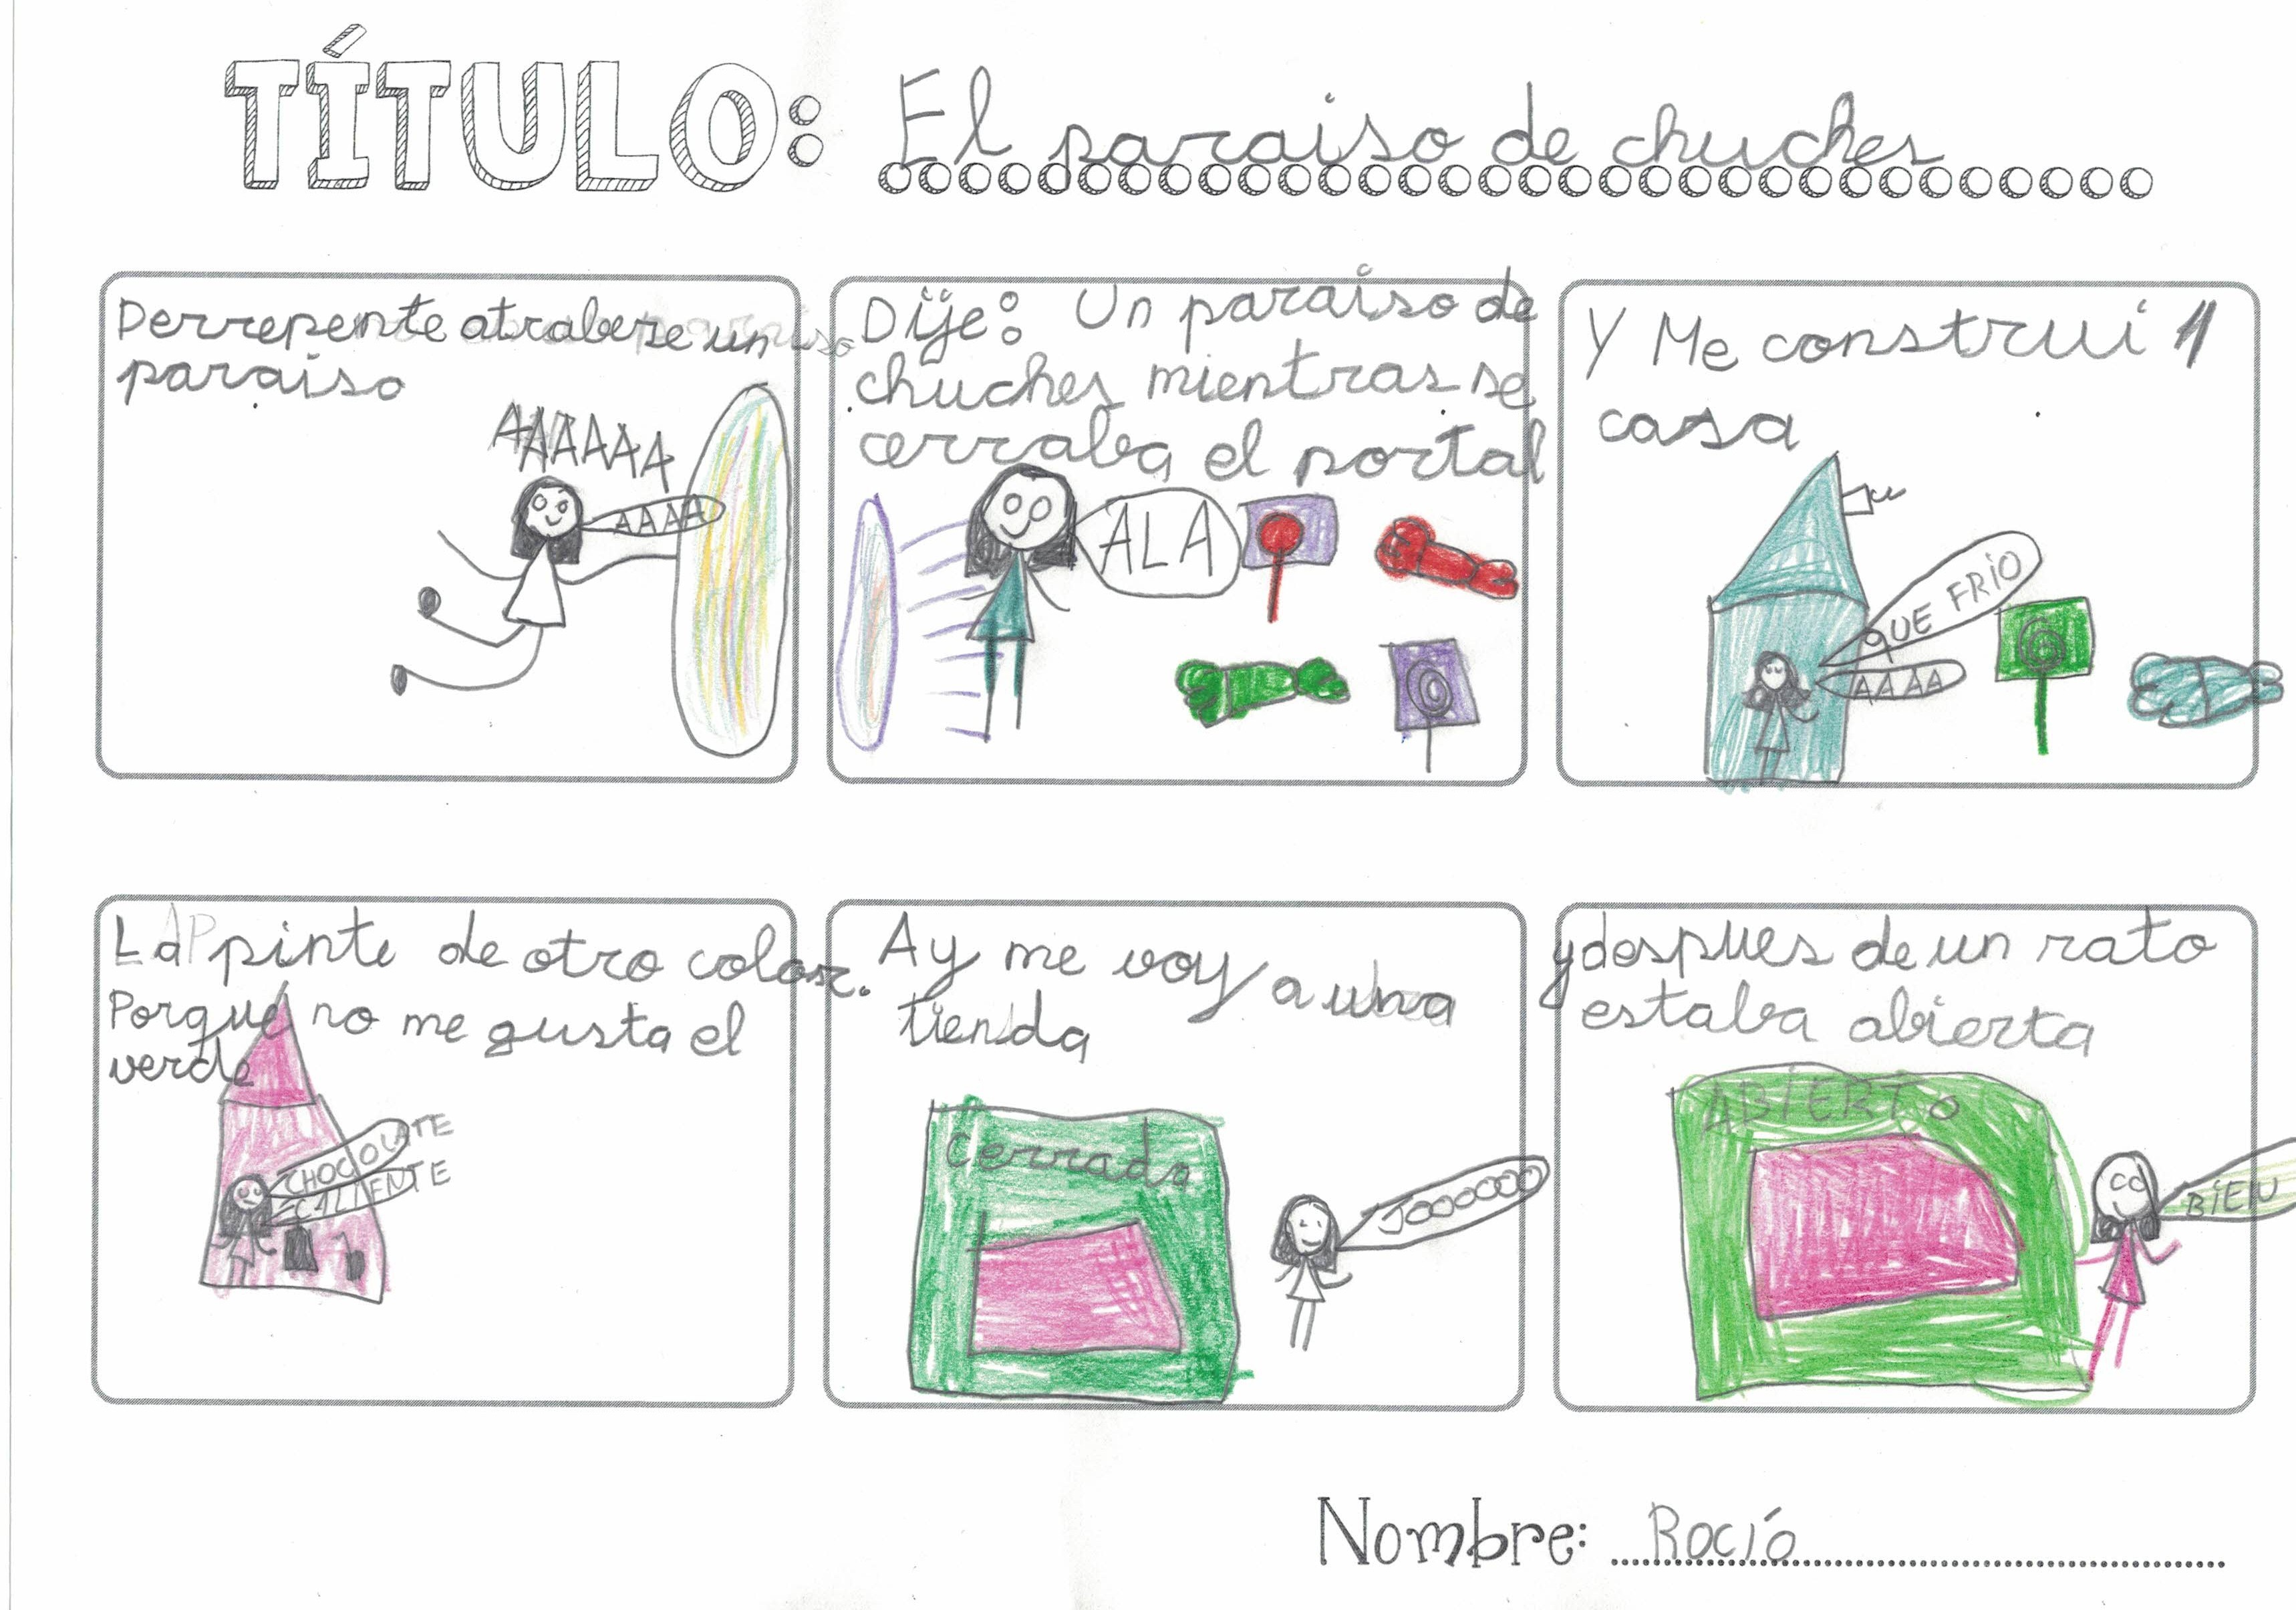 TÍTULO: El paraiso de chuches
Derrepente atrabese un
paraiso
AAAAAA
AAAA
Dije: Un paraiso de
chuches mientras se
cerraba el portal
ALA
Y Me construi 1
casa
QUE FRIO
AAAA
La pinte de otro color.
Porque no me gusta el
verde
CHOCOLATE
CALIENTE
Ay me voy a una
tienda
Cerrado
JOOOOOO
y despues de un rato
estaba abierta
ABIERTO
BIEN
Nombre: Rocío